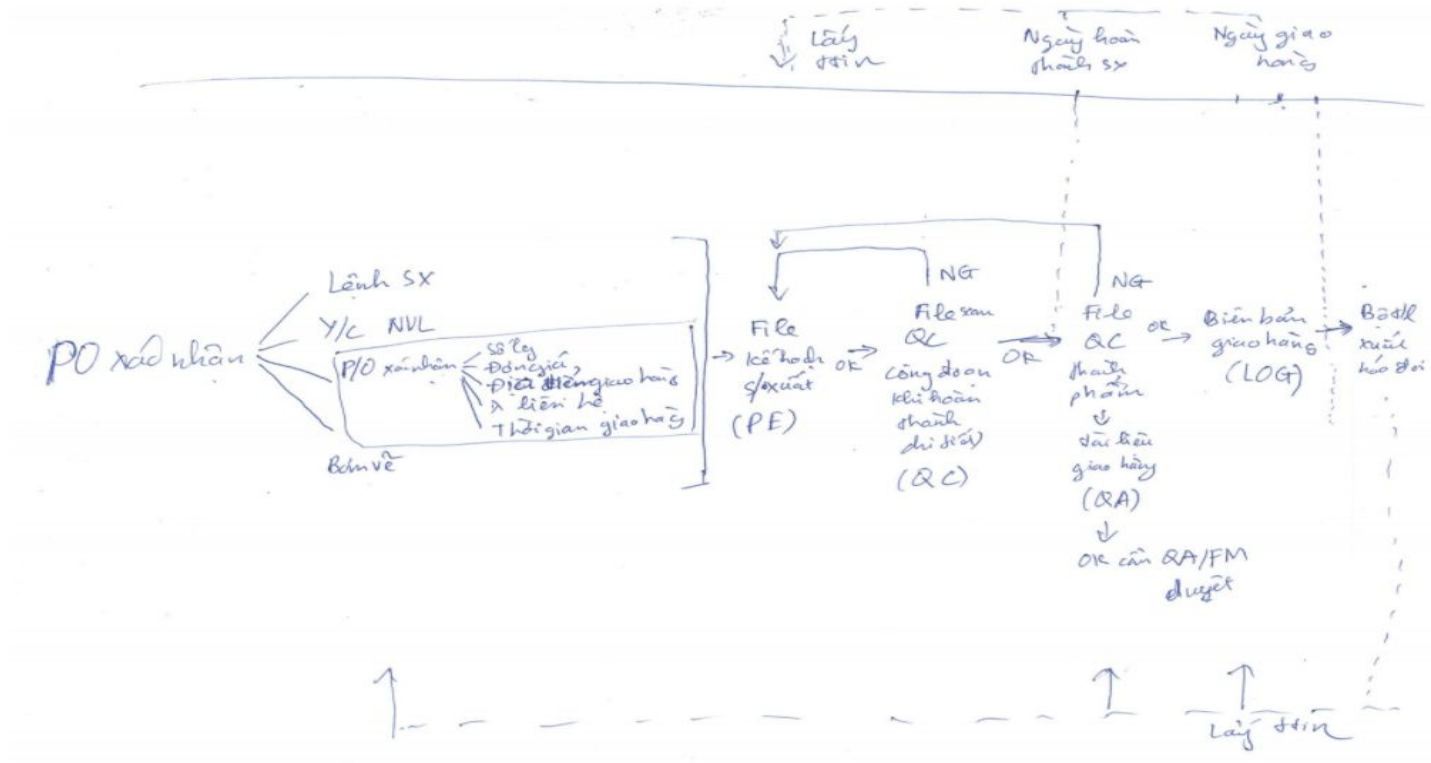 Lấy
ttin
Ngày hoàn
thành SX
Ngày giao
hàng
PO xác nhận
Lệnh SX
Y/C NVL
P/O xác nhận
Số lg
Đơn giá,
Địa điểm giao hàng
liên hệ
Thời gian giao hàng
Bản vẽ
File
kế hoạch
s/xuất
(PE)
OK
NG
File sau
QC
công đoạn
khi hoàn
thành
chi tiết)
(QC)
OK
NG
File
QC
thành
phẩm
tài liệu
giao hàng
(QA)
OK cần QA/FM
duyệt
OK
Biên bản
giao hàng
(LOG)
xuất
Lấy ttin